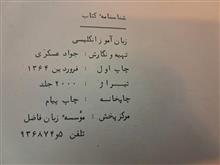 شناسنامهٔ کتاب
زبان آموز انگلیسی
تهیه و نگارش : جواد عسکری
چاپ اول : فروردین ۱۳۶۴
تیراژ : ۲۰۰۰ جلد
چاپخانه : چاپ پیام
مرکز پخش : مؤسسهٔ زبان فاضل
تلفن ۵و۹۳۶۸۷۴